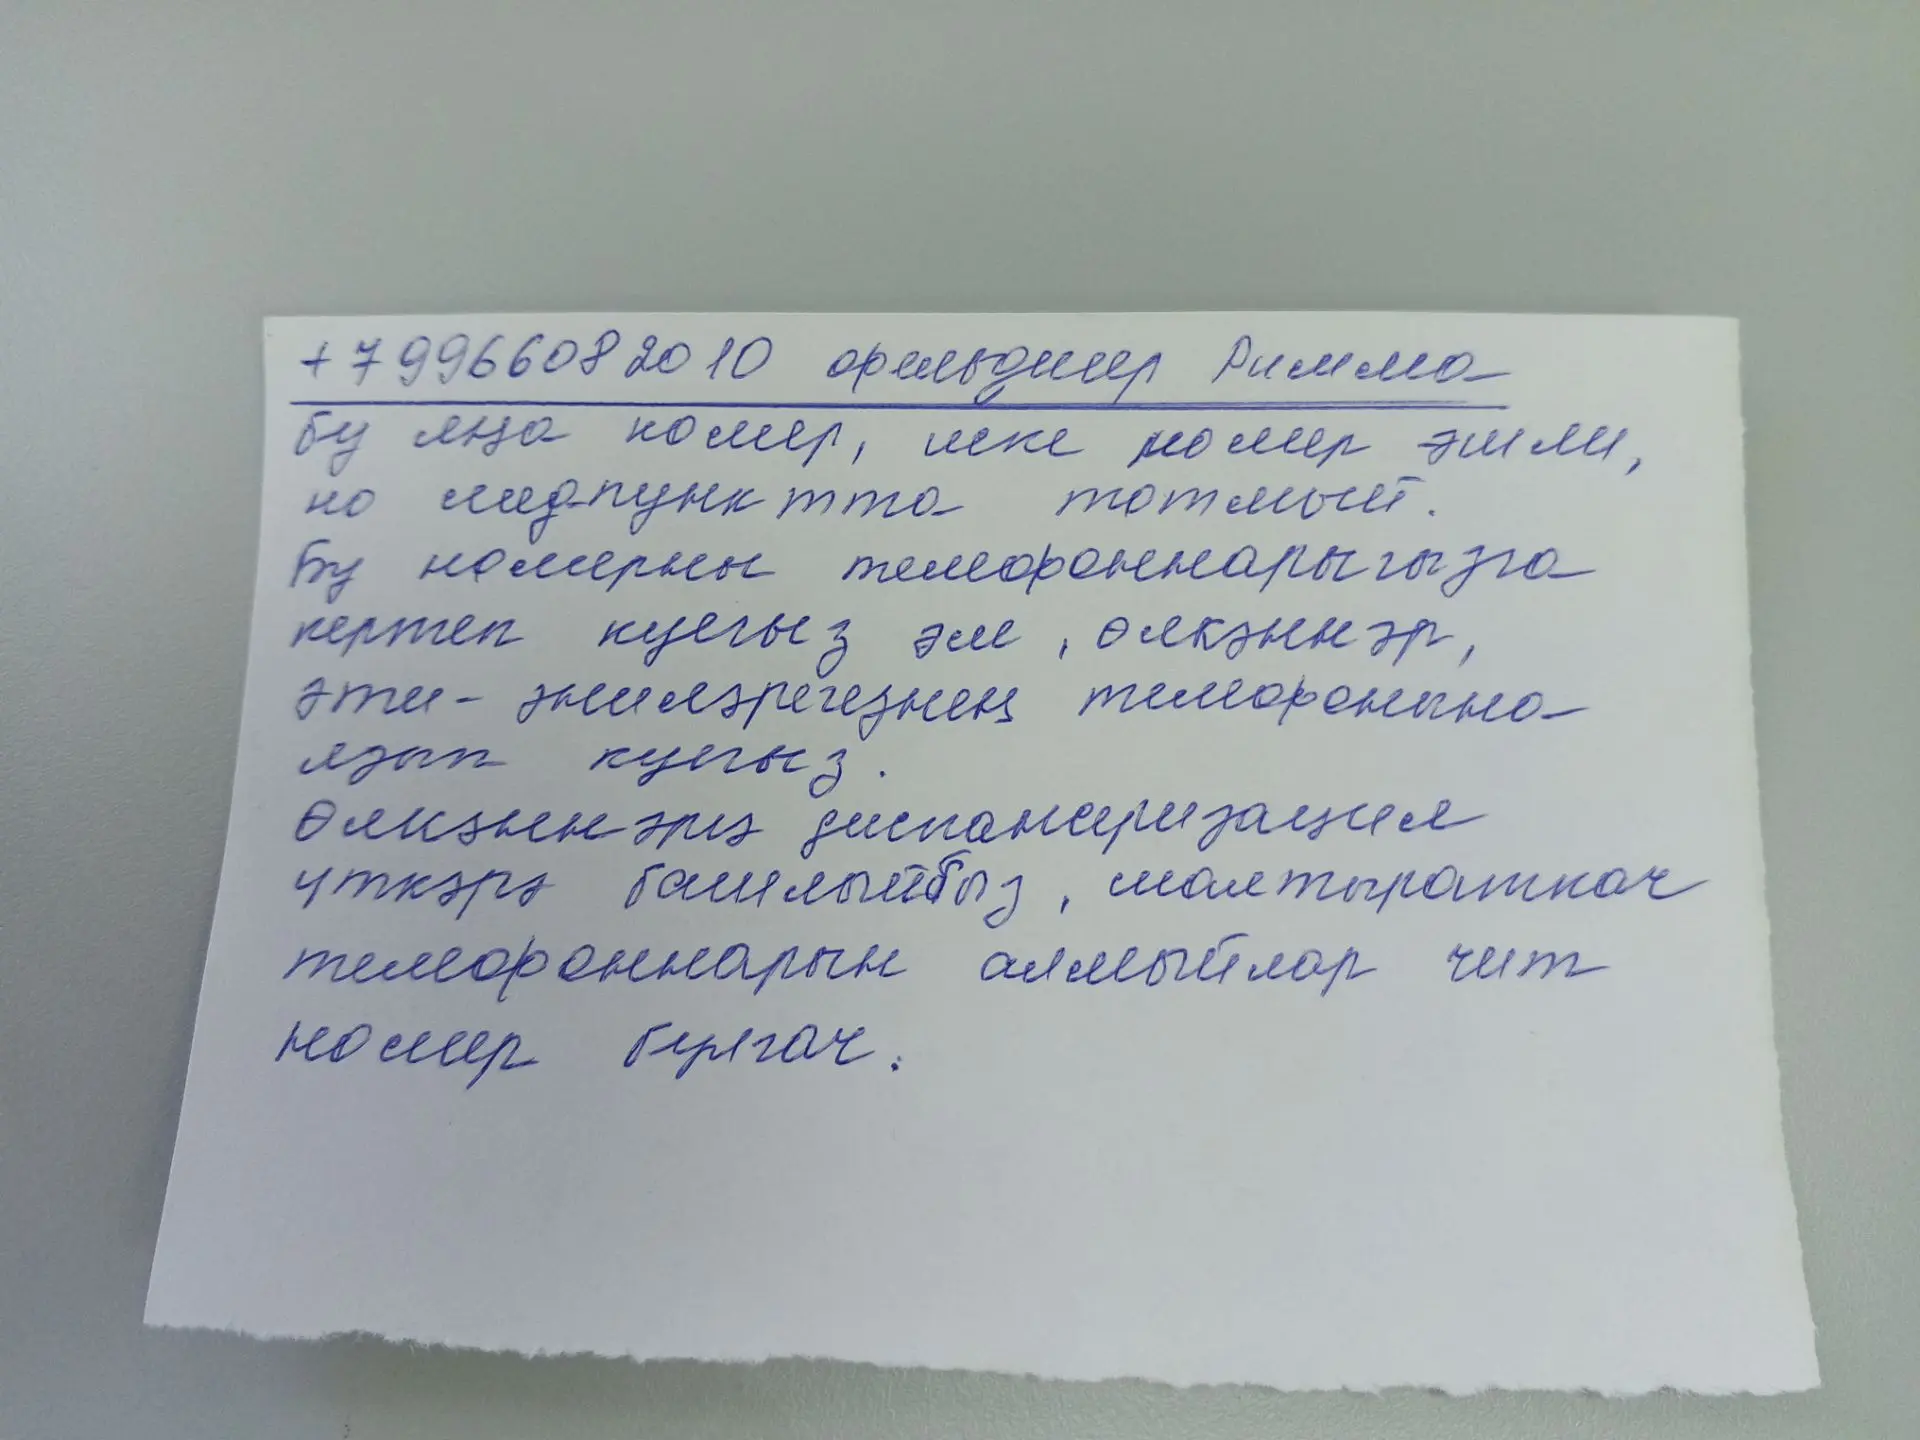 +79966082010 фельдшер Римма
бу яңа номер, иске номер эшли,
но медпунктта тотмый.
Бу номерны телефоннарыгызга
кертеп куегыз әм, өлкәннәр,
әти-әниләрегезнең телефонына
язып куегыз.
Өлкәннәргә диспансеризация
үткәрә башлыйбыз, шалтыраткач
телефоннарын алмыйлар чит
номер булгач.